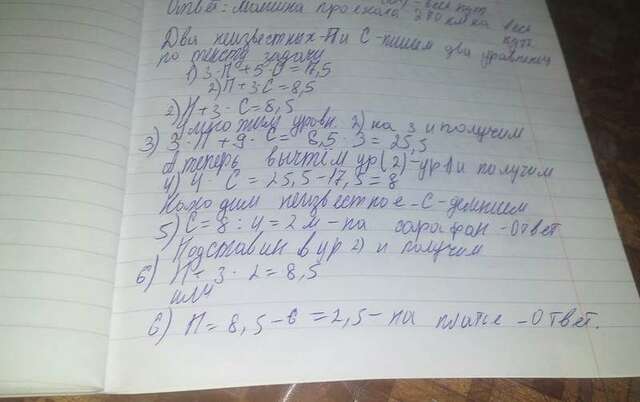 Ответ: машина проехала 270 км за весь путь
Два неизвестных - П и С - пишем два уравнения
по тексту задачи
1) 3·П + 5·С = 17,5
2) П + 3·С = 8,5
2) П + 3·С = 8,5
Умножим уравн. 2) на 3 и получим
3) 3·П + 9·С = 8,5·3 = 25,5
а теперь вычтем ур(2)-ур1) и получим
4) 4·С = 25,5-17,5 = 8
Находим неизвестное -С- делением
5) С = 8 : 4 = 2 м - на сарафан - ответ
Подставим в ур 2) и получим
6) П + 3·2 = 8,5
или
6) П = 8,5 - 6 = 2,5 - на платье - Ответ.